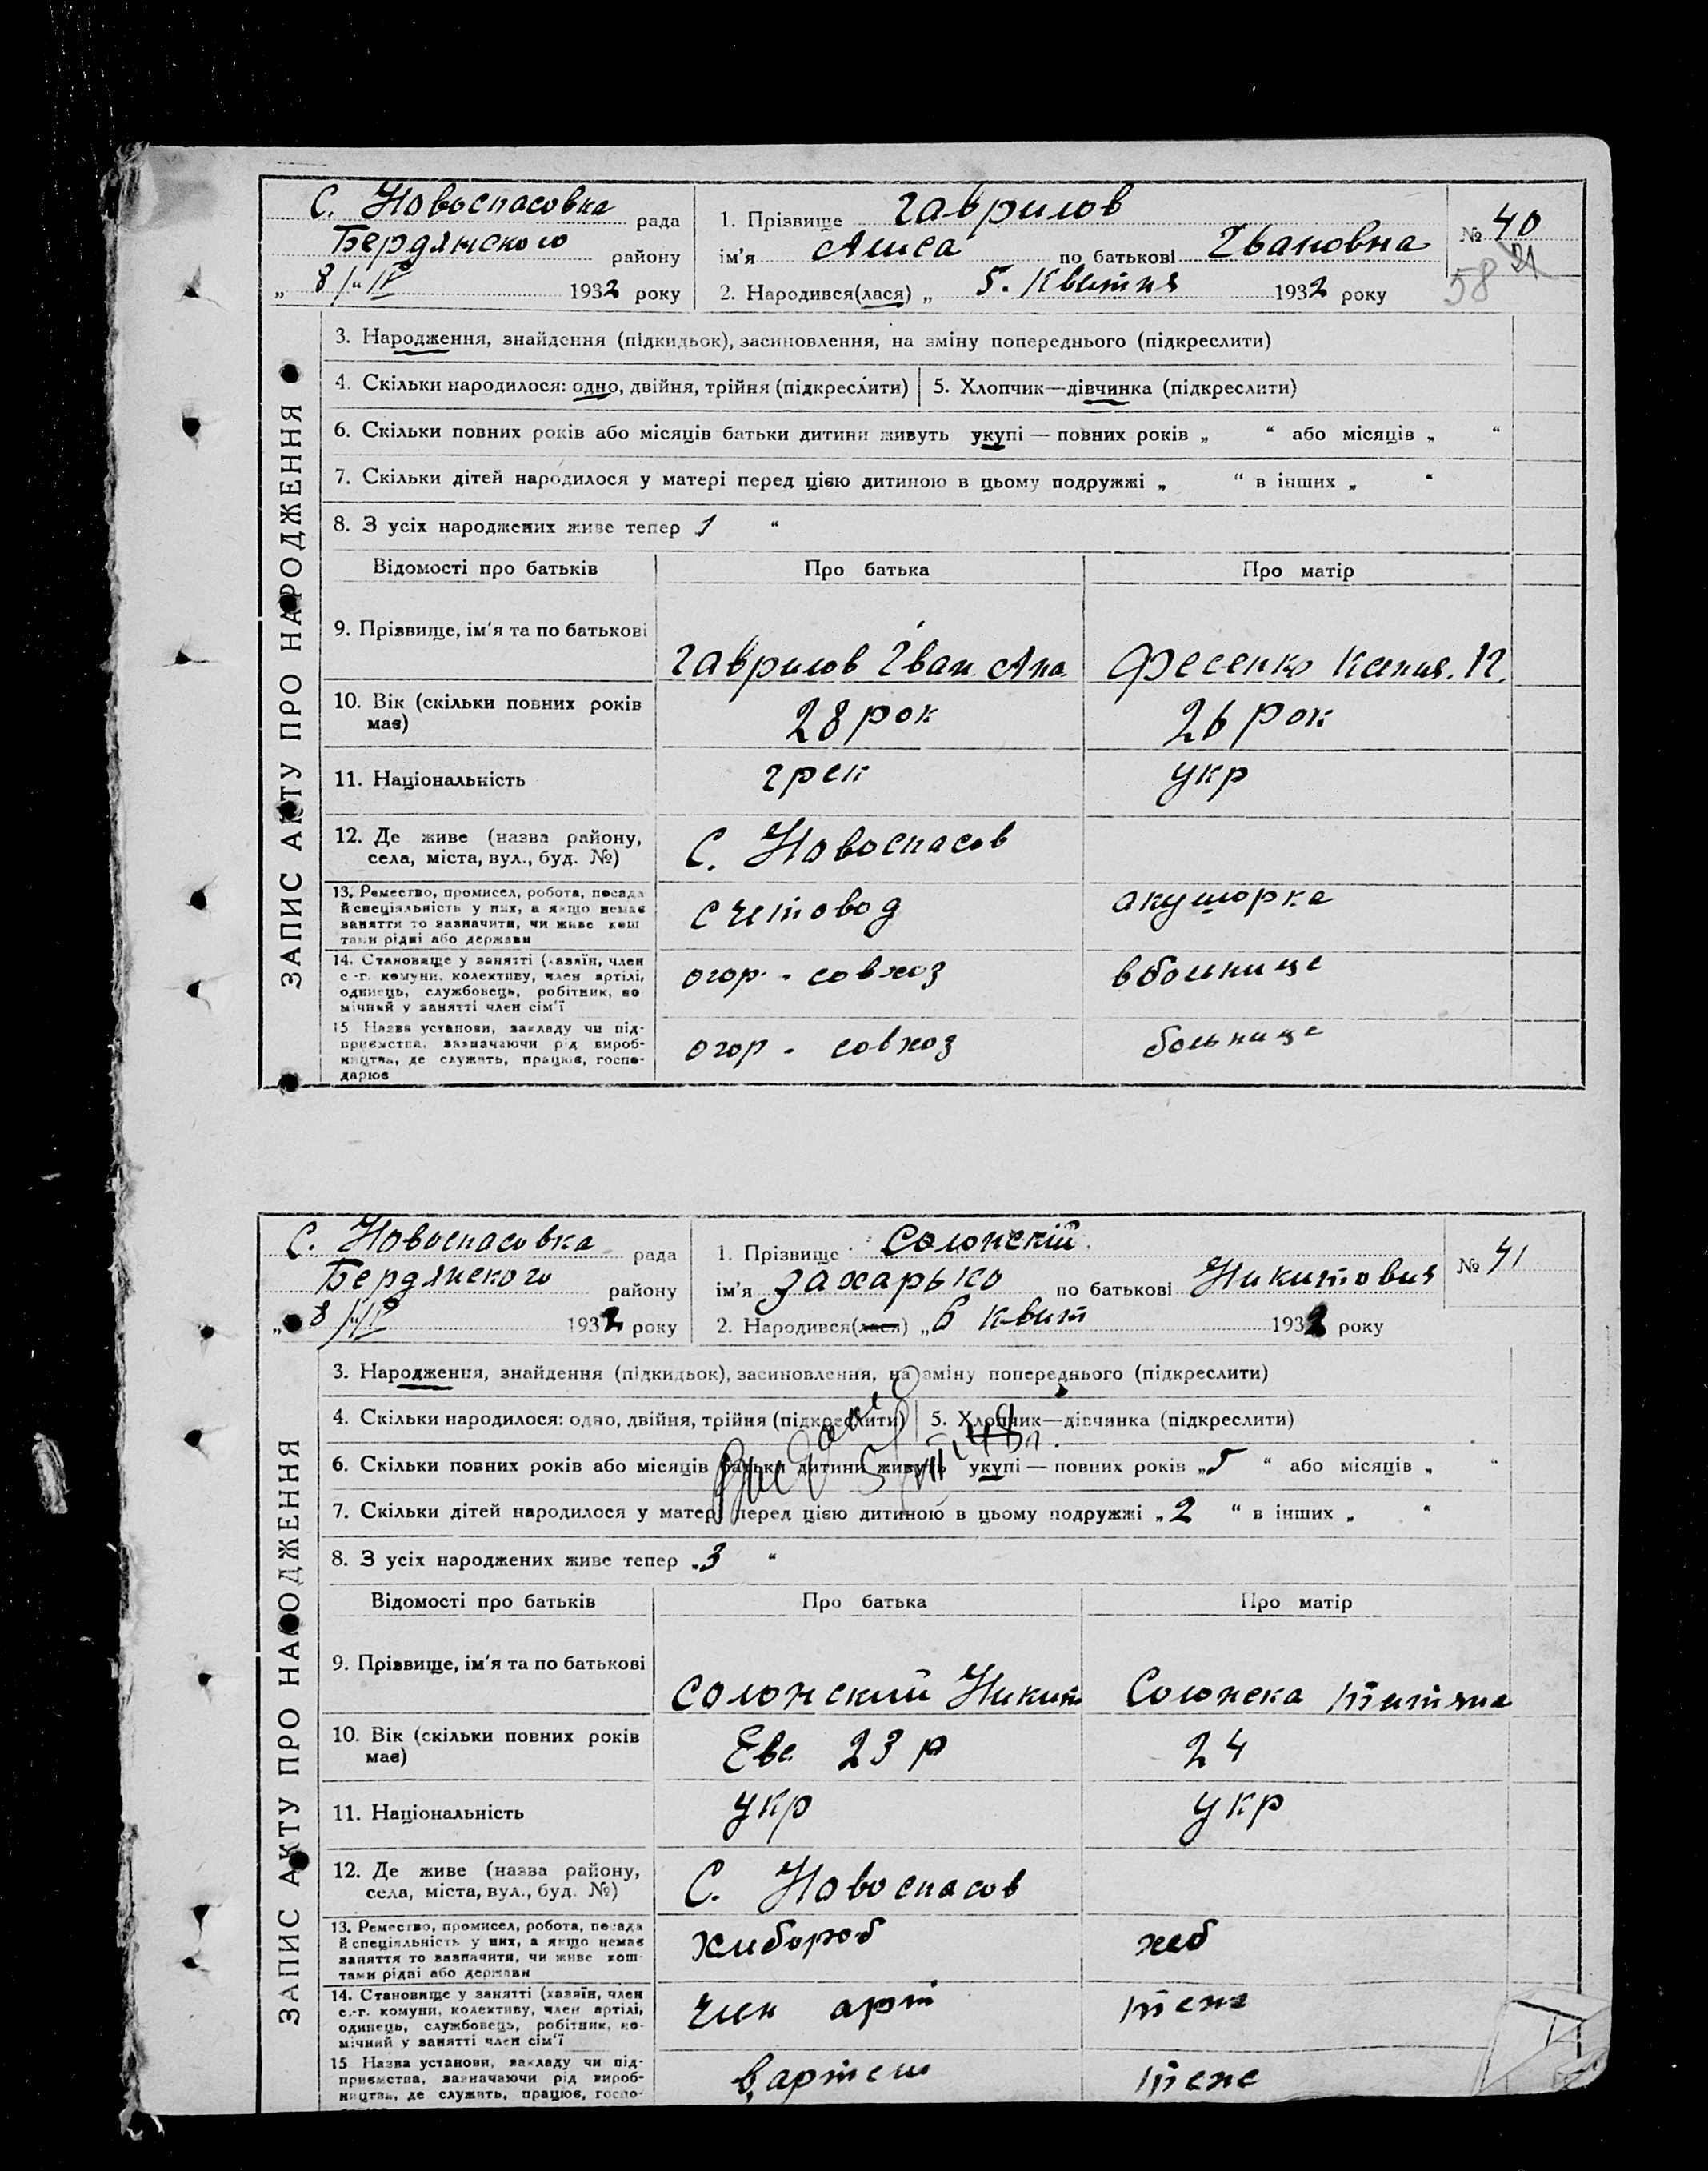 С. Новоспасовка рада
Бердянского району
„ 8/IV 1932 року
1. Прізвище Гаврилов
ім'я Алиса по батькові Івановна
2. Народився(лася) „ 5. Квитня 1932 року
№ 40
21
58
ЗАПИС АКТУ ПРО НАРОДЖЕННЯ
3. Народження, знайдення (підкидьок), засиновлення, на зміну попереднього (підкреслити)
4. Скільки народилося: одно, двійня, трійня (підкреслити) 5. Хлопчик—дівчинка (підкреслити)
6. Скільки повних років або місяців батьки дитини живуть укупі — повних років „ “ або місяців „ “
7. Скільки дітей народилося у матері перед цією дитиною в цьому подружжі „ “ в інших „ “
8. З усіх народжених живе тепер 1 “
Відомості про батьків Про батька Про матір
9. Прізвище, ім'я та по батькові Гаврилов Іван Апа. Фесенко Ксения. П.
10. Вік (скільки повних років має) 28 рок 26 рок
11. Національність грек укр
12. Де живе (назва району, села, міста, вул., буд. №) С. Новоспасов
13. Ремество, промисел, робота, посада й спеціяльність у них, а якщо немає заняття то зазначити, чи живе кош тами рідні або держави счетовод акушорка
14. Становище у занятті (хазяїн, член с.-г. комуни, колективу, член артілі, одинець, службовець, робітник, по мічний у занятті член сім'ї огор - совхоз в больнице
15 Назва установи, закладу чи під- приємства, зазначаючи рід вироб- ництва, де служить, працює, госпо- дарює огор - совхоз больнице
С. Новоспасовка рада
Бердянского району
„ 8/IV 1932 року
1. Прізвище Солонскій
ім'я Захарько по батькові Никитович
2. Народився(лася) „ 6 квит 1932 року
№ 41
ЗАПИС АКТУ ПРО НАРОДЖЕННЯ
3. Народження, знайдення (підкидьок), засиновлення, на зміну попереднього (підкреслити)
4. Скільки народилося: одно, двійня, трійня (підкреслити) 5. Хлопчик—дівчинка (підкреслити)
6. Скільки повних років або місяців батьки дитини живуть укупі — повних років „ 5 “ або місяців „ “
7. Скільки дітей народилося у матері перед цією дитиною в цьому подружжі „ 2 “ в інших „ “
8. З усіх народжених живе тепер „ 3 “
Відомості про батьків Про батька Про матір
9. Прізвище, ім'я та по батькові Солонский Никит Солонска Титяна
10. Вік (скільки повних років має) Еве 23 р 24
11. Національність укр укр
12. Де живе (назва району, села, міста, вул., буд. №) С. Новоспасов
13. Ремество, промисел, робота, посада й спеціяльність у них, а якщо немає заняття то зазначити, чи живе кош- тами рідні або держави хлибороб хлб
14. Становище у занятті (хазяїн, член с.-г. комуни, колективу, член артілі, одинець, службовець, робітник, по- мічний у занятті член сім'ї член арт теже
15 Назва установи, закладу чи під- приємства, зазначаючи рід вироб- ництва, де служить, працює, госпо- в артели теже